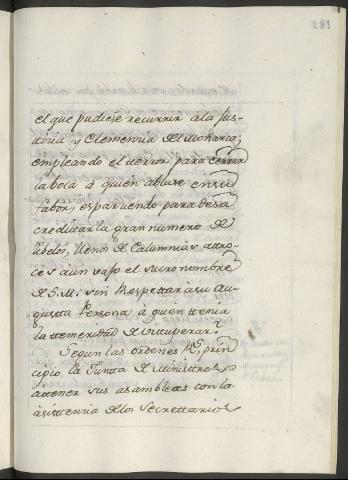 283
el que pudiese recurrir ala Jus-
ticia y Clemencia del Monarca,
empleando el terror para cerrar
la boca à quien ablase en su
fabor, esparciendo para desa
creditarla gran numero de
libelos, llenos de Calumnias atro-
ces aun vajo el sacro nombre
de S.M. sin Respettar a su Au-
gusta Persona à quien tenia
la temeridad de vituperar.
Segun las ordenes Rs. prin
cipio la Junta de Ministros
à tener sus asambleas con la
asistencia de los Secrettarios